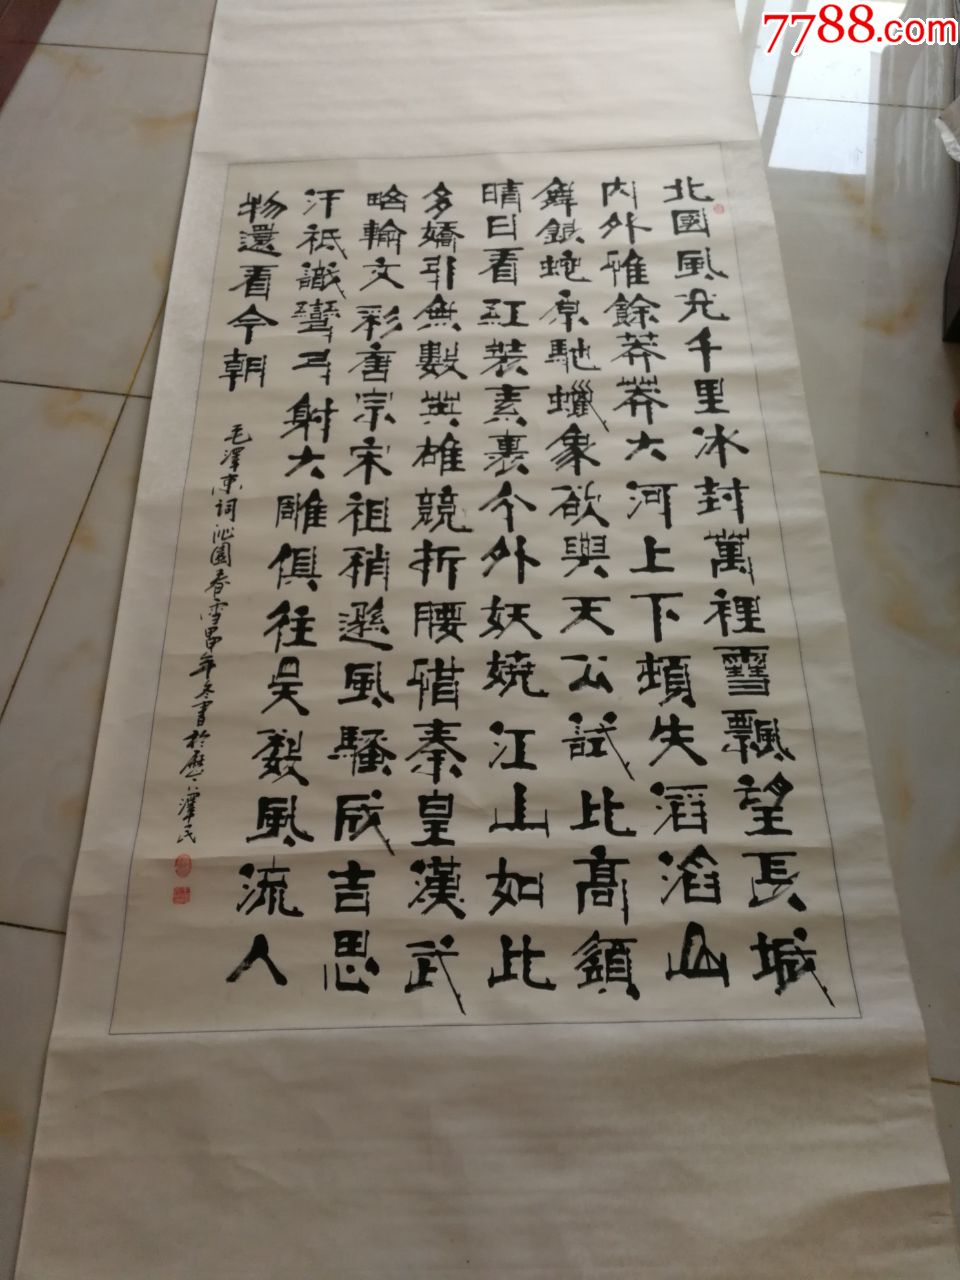 北國風光千里冰封萬裡雪飄望長城
内外惟餘莽莽大河上下頓失滔滔山
舞銀蛇原馳蠟象欲與天公試比高須
晴日看紅裝素裹分外妖嬈江山如此
多嬌引無數英雄競折腰惜秦皇漢武
略輸文彩唐宗宋祖稍遜風騷成吉思
汗祗識彎弓射大雕俱往矣數風流人
物還看今朝
毛澤東詞沁園春雪年冬書於歷澤民
7788.com